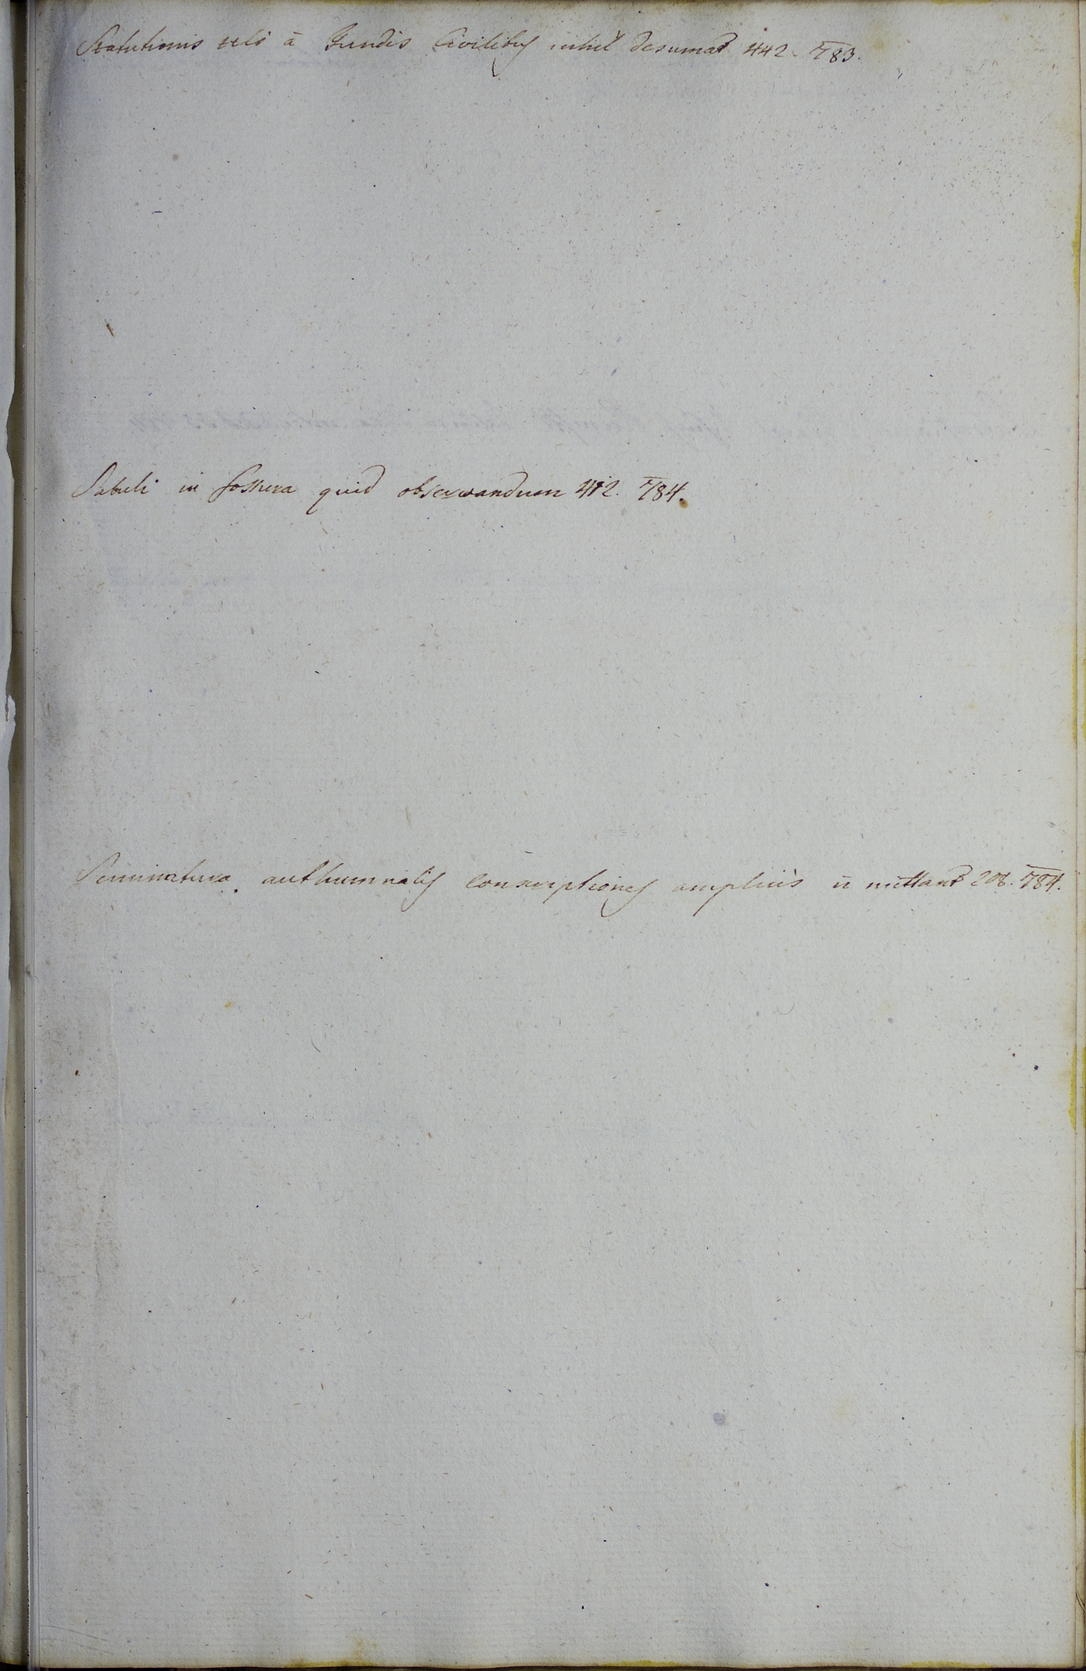 Statutionis relo à Fundis Civilibꝰ nihil desumat 442. 783.
Sabuli in fossura quid observandum 412. 784.
Seminatura authumnalis conscriptiones ampliùs ñ mittant 208. 784.